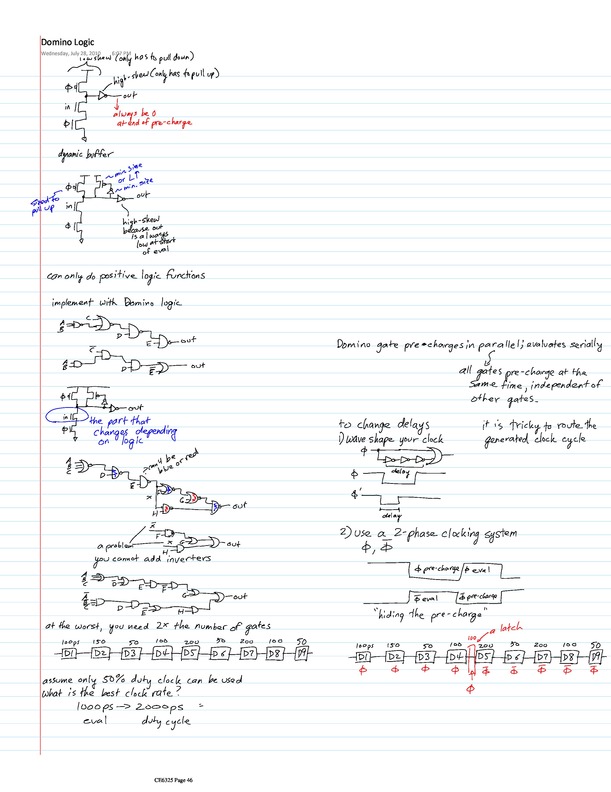 Domino Logic
Wednesday, July 28, 2010 6:07 PM
low skew (only has to pull down)
high-skew (only has to pull up)
ϕ
out
in
always be 0
at end of pre-charge
ϕ
dynamic buffer
~ min size
or L↑
~ min. size
ϕ
used to
pull up
out
in
ϕ
high-skew
because out
is always
low at start
of eval
can only do positive logic functions
implement with Domino logic
A
B
C
D
E
out
A
B
C̅
D
E̅
out
ϕ
out
in
ϕ
the part that
changes depending
on logic
must be
blue or red
A
B
C
D
E
x
G
H
out
a problem
x̅
F
x
H
out
you cannot add inverters
A
B
C
D
E
F
G
out
A̅
B̅
C̅
D̅
E̅
F
H
at the worst, you need 2x the number of gates
100ps 150 50 100 200 50 200 100 50
D1 D2 D3 D4 D5 D6 D7 D8 D9
assume only 50% duty clock can be used
what is the best clock rate?
1000ps → 2000ps =
eval duty cycle
Domino gate pre-charges in parallel; evaluates serially
all gates pre-charge at the
same time, independent of
other gates.
to change delays
1) wave shape your clock
it is tricky to route the
generated clock cycle
ϕ
delay
ϕ
ϕ'
delay
2) use a 2-phase clocking system
ϕ, ϕ̅
ϕ pre-charge ϕ eval
ϕ̅ eval ϕ̅ pre-charge
"hiding the pre-charge"
a latch
100ps 150 50 100 100 200 50 200 100 50
D1 D2 D3 D4 D5 D6 D7 D8 D9
ϕ ϕ ϕ ϕ ϕ ϕ̅ ϕ̅ ϕ̅ ϕ̅ ϕ̅
CE6325 Page 46